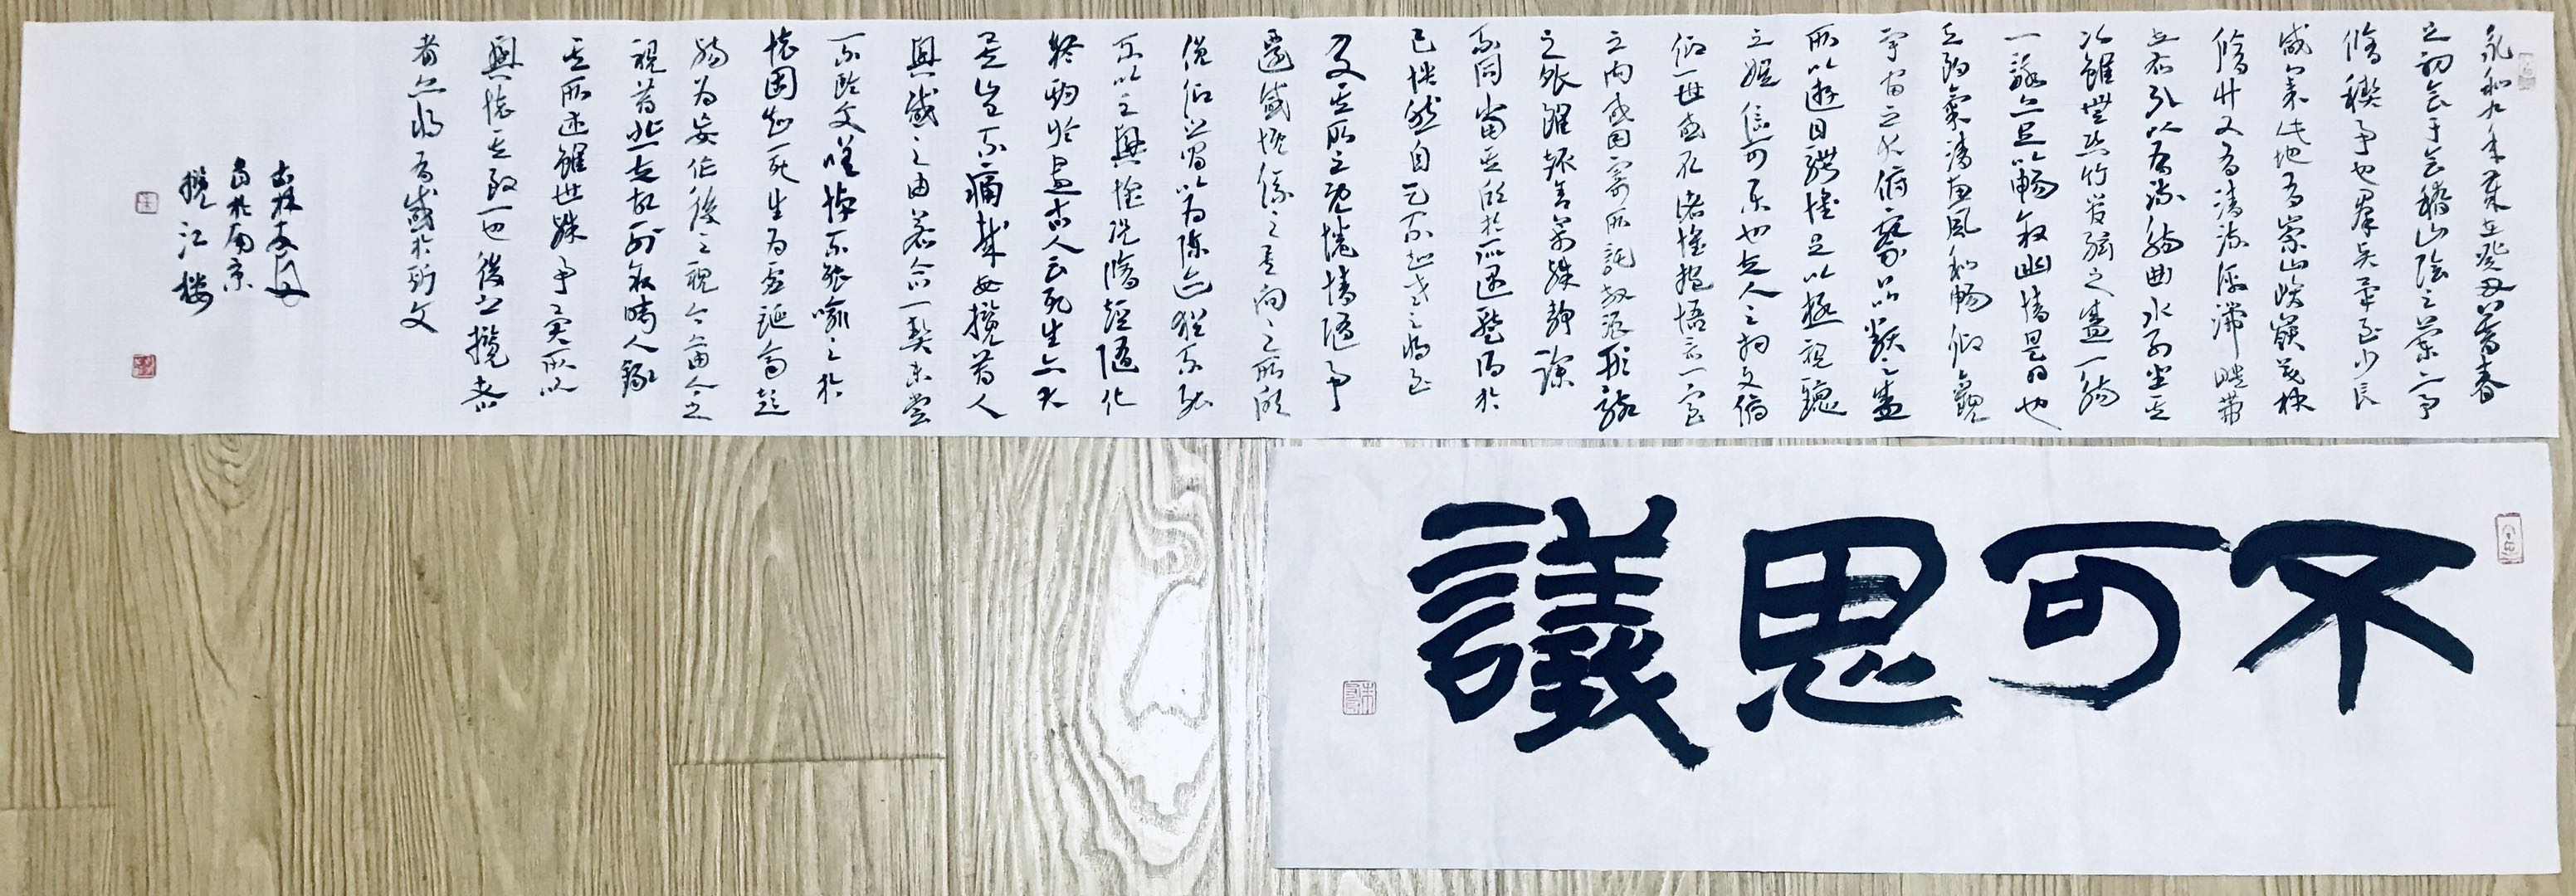 永和九年歲在癸丑暮春
之初会于会稽山陰之蘭亭
脩稧事也羣賢畢至少長
咸集此地有崇山峻嶺茂林
脩竹又有清流激湍暎帶
左右引以為流觴曲水列坐其
次雖無絲竹管弦之盛一觴
一詠亦足以暢叙幽情是日也
天朗氣清惠風和暢仰觀
宇宙之大俯察品類之盛
所以遊目騁懷足以極視聽
之娛信可樂也夫人之相與俯
仰一世或取諸懷抱悟言一室
之內或因寄所託放浪形骸
之外雖趣舍萬殊靜躁
不同當其欣於所遇蹔得於
己怏然自足不知老之將至
及其所之既惓情隨事
遷感慨係之矣向之所欣
俛仰之間以為陳迹猶不能
不以之興懷況脩短隨化
終期於盡古人云死生亦大
矣豈不痛哉每攬昔人
興感之由若合一契未嘗
不臨文嗟悼不能喻之於
懷固知一死生為虛誕齊彭
殤為妄作後之視今亦由今之
視昔悲夫故列叙時人錄
其所述雖世殊事異所以
興懷其致一也後之攬者
者亦將有感於斯文
吉林
書於南京
攬江楼
不可思議